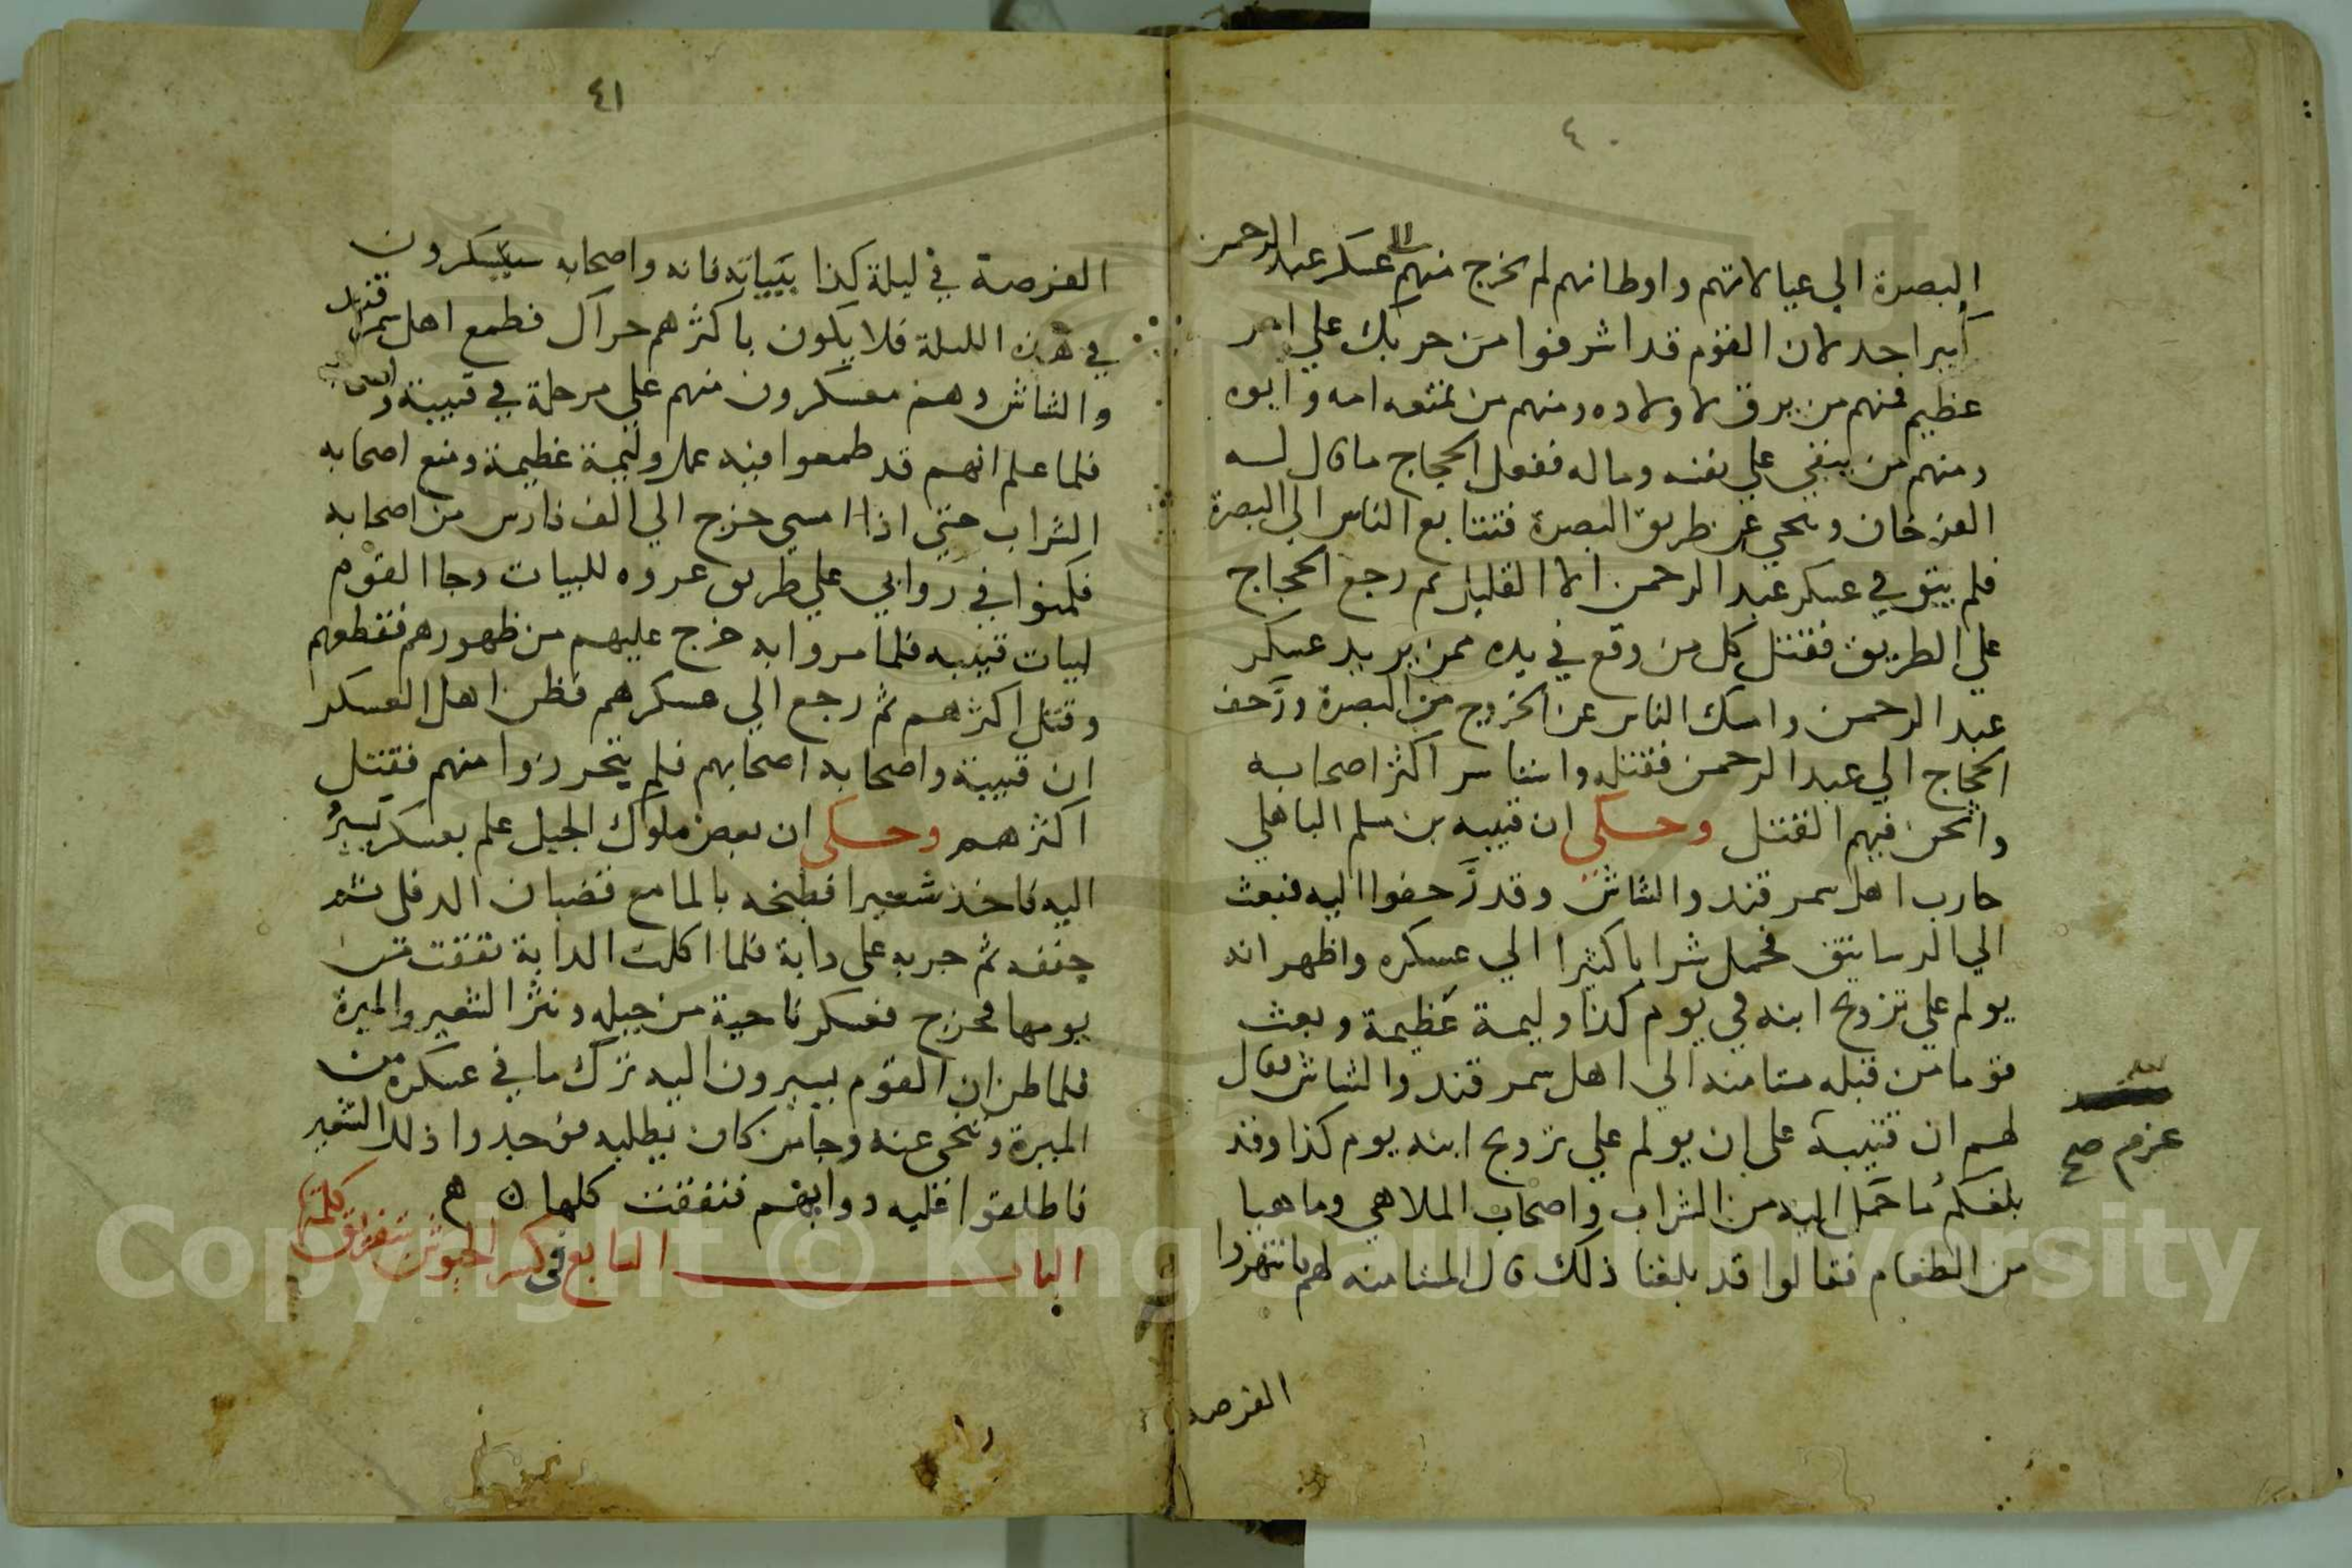 ٤٠
البصرة الي عيالاتهم واوطانهم لم يخرج منهم الى عسكر عبد الرحمن
كبير احد لان القوم قد اشرفوا من حربك علي امر
عظيم فمنهم من يرق لاولاده ومنهم من تمنعه امه وابوه
ومنهم من يبقي علي نفسه وماله ففعل الحجاج ما قال له
الفرخان وتنحي عن طريق البصرة فتتابع الناس الي البصرة
فلم يبق في عسكر عبد الرحمن الا القليل ثم رجع الحجاج
علي الطريق فقتل كل من وقع في يده ممن يريد عسكر
عبد الرحمن وامسك الناس عن الخروج من البصرة وزحف
الحجاج الي عبد الرحمن فقتله واستاسر اكثر اصحابه
واثخن فيهم القتل وحكي ان قتيبه بن مسلم الباهلي
حارب اهل سمرقند والشاش وقد زحفوا اليه فبعث
الي الرساتيق فحمل شرابا كثيرا الي عسكره واظهر انه
يولم علي تزويج ابنه في يوم كذا وليمة عظيمة وبعث
قوما من قبله مستامنه الي اهل سمرقند والشاش فقال
لهم ان قتيبة علي ان يولم علي تزويج ابنه يوم كذا وقد
بلغكم ما حمل اليه من الشراب واصحاب الملاهي وما هيا
من الطعام فقالوا قد بلغنا ذلك قال المستامنه لهم فانتهزوا
عزم صح
الفرصة
٤١
الفرصة في ليلة كذا ببياته فانه واصحابه سيسكرون
في هذه الليلة فلا يكون باكثرهم حراك فطمع اهل سمرقند
والشاش وهم معسكرون منهم علي مرحلة في قتيبة
فلما علم انهم قد طمعوا فيه عمل وليمة عظيمة ومنع اصحابه
الشراب حتي اذا امسي خرج الي الف فارس من اصحابه
فكمنوا في روابي علي طريق عروه للبيات وجا القوم
لبيات قتيبه فلما مروا به خرج عليهم من ظهورهم فقطعهم
وقتل اكثرهم ثم رجع الي عسكرهم فظن اهل العسكر
ان قتيبة واصحابه اصحابهم فلم يتحرزوا منهم فقتل
اكثرهم وحكي ان بعض ملوك الجبل علم بعسكر يسير
اليه فاخذ شعيرا فطبخه بالما مع قضبان الدفلي ثم
جففه ثم جربه على دابة فلما اكلت الدابة نفقت من
يومها فخرج فعسكر ناحية من جبله ونثر الشعير والميرة
فلما ظن ان القوم يسيرون اليه ترك ما في عسكره من
الميرة وتنحى عنه وجا من كان يطلبه فوجدوا ذلك الشعير
فاطلقوا فيه دوابهم فنفقت كلها
الباب السابع في كسر الجيوش بتفريق كلمتها